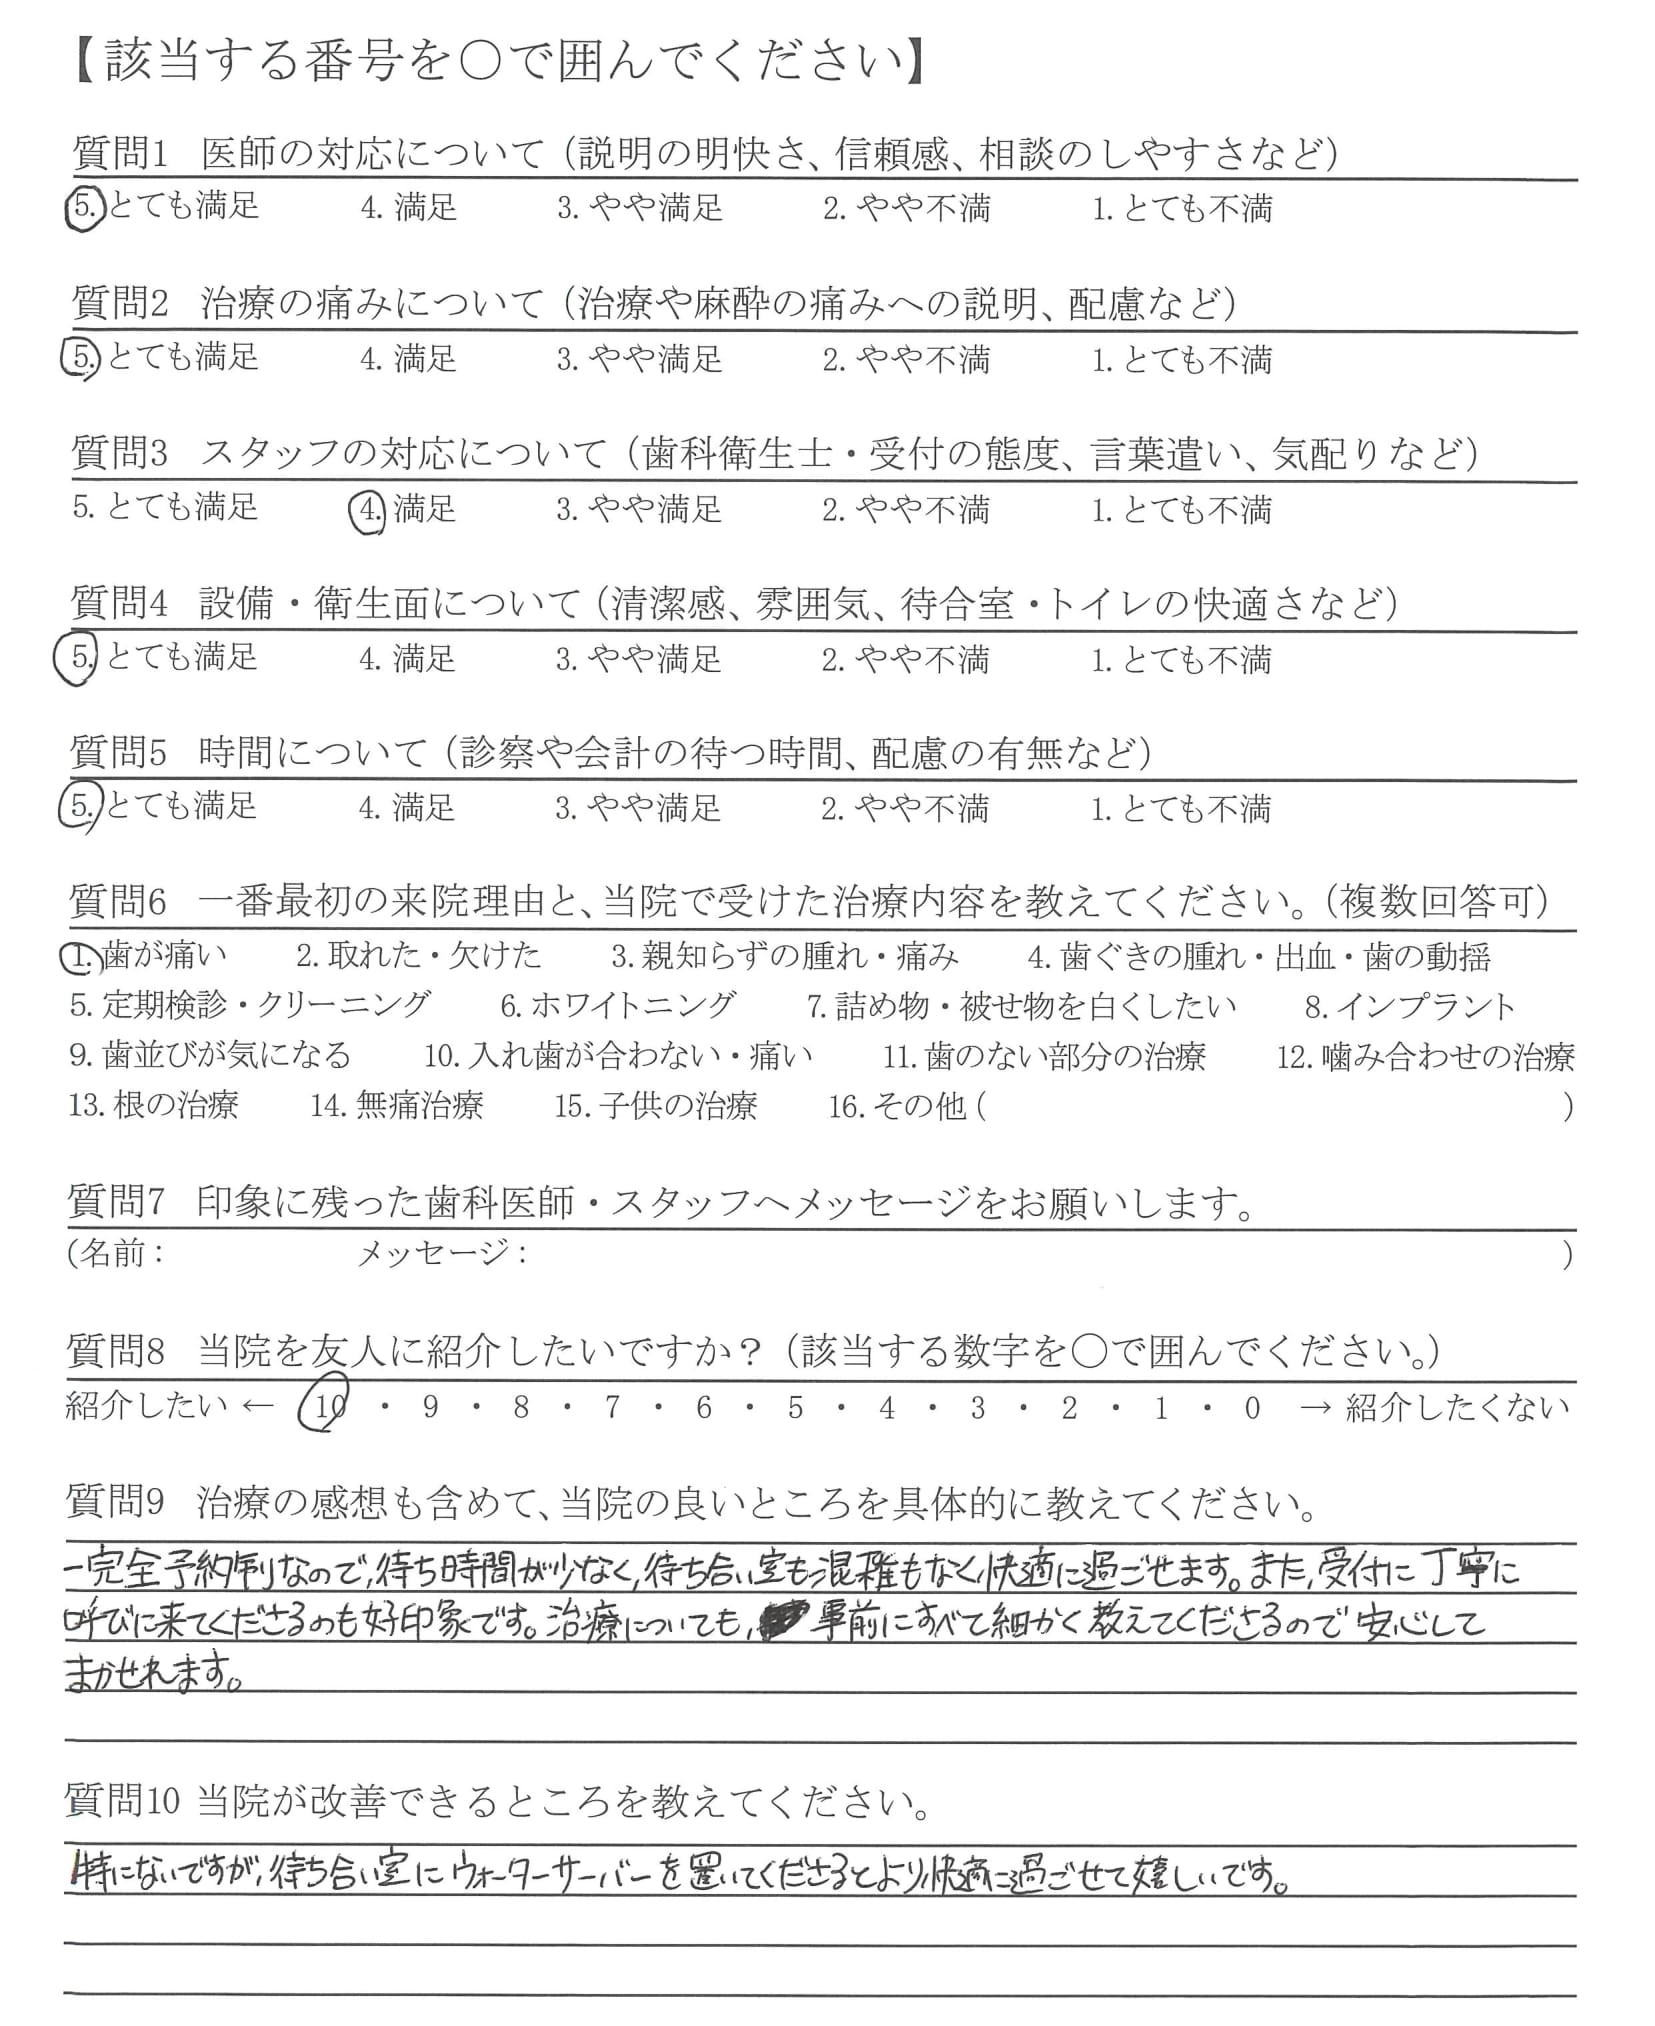 【該当する番号を○で囲んでください】
質問1 医師の対応について（説明の明快さ、信頼感、相談のしやすさなど）
5. とても満足 4. 満足 3. やや満足 2. やや不満 1. とても不満
質問2 治療の痛みについて（治療や麻酔の痛みへの説明、配慮など）
5. とても満足 4. 満足 3. やや満足 2. やや不満 1. とても不満
質問3 スタッフの対応について（歯科衛生士・受付の態度、言葉遣い、気配りなど）
5. とても満足 4. 満足 3. やや満足 2. やや不満 1. とても不満
質問4 設備・衛生面について（清潔感、雰囲気、待合室・トイレの快適さなど）
5. とても満足 4. 満足 3. やや満足 2. やや不満 1. とても不満
質問5 時間について（診察や会計の待つ時間、配慮の有無など）
5. とても満足 4. 満足 3. やや満足 2. やや不満 1. とても不満
質問6 一番最初の来院理由と、当院で受けた治療内容を教えてください。（複数回答可）
1. 歯が痛い 2. 取れた・欠けた 3. 親知らずの腫れ・痛み 4. 歯ぐきの腫れ・出血・歯の動揺
5. 定期検診・クリーニング 6. ホワイトニング 7. 詰め物・被せ物を白くしたい 8. インプラント
9. 歯並びが気になる 10. 入れ歯が合わない・痛い 11. 歯のない部分の治療 12. 噛み合わせの治療
13. 根の治療 14. 無痛治療 15. 子供の治療 16. その他（ ）
質問7 印象に残った歯科医師・スタッフへメッセージをお願いします。
（名前： メッセージ： ）
質問8 当院を友人に紹介したいですか？（該当する数字を○で囲んでください。）
紹介したい ← 10 ・ 9 ・ 8 ・ 7 ・ 6 ・ 5 ・ 4 ・ 3 ・ 2 ・ 1 ・ 0 → 紹介したくない
質問9 治療の感想も含めて、当院の良いところを具体的に教えてください。
完全予約制なので、待ち時間が少なく、待ち合い室も混雑もなく快適に過ごせます。また、受付に丁寧に
呼びに来てくださるのも好印象です。治療についても、事前にすべて細かく教えてくださるので安心して
まかせれます。
質問10 当院が改善できるところを教えてください。
特にないですが、待ち合い室にウォーターサーバーを置いてくださるとより快適に過ごせて嬉しいです。